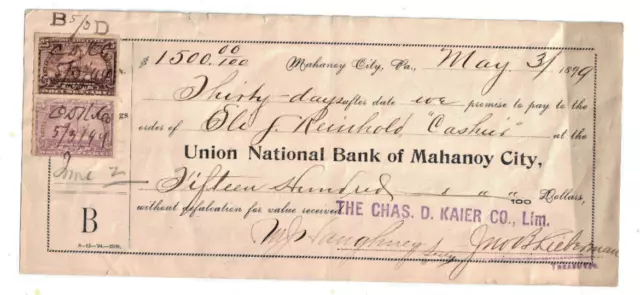 B 5/3 D
$1500.00/100 Mahanoy City, Pa., May 3/ 1899
Thirty-days after date we promise to pay to the
order of Eli J. Reinhold "Cashier" at the
Union National Bank of Mahanoy City,
Fifteen Hundred /100 Dollars,
without defalcation for value received
THE CHAS. D. KAIER CO., Lim.
Secy Jno B Lieberman
TREASURER
5/3/99
5/3/99
June 2
B